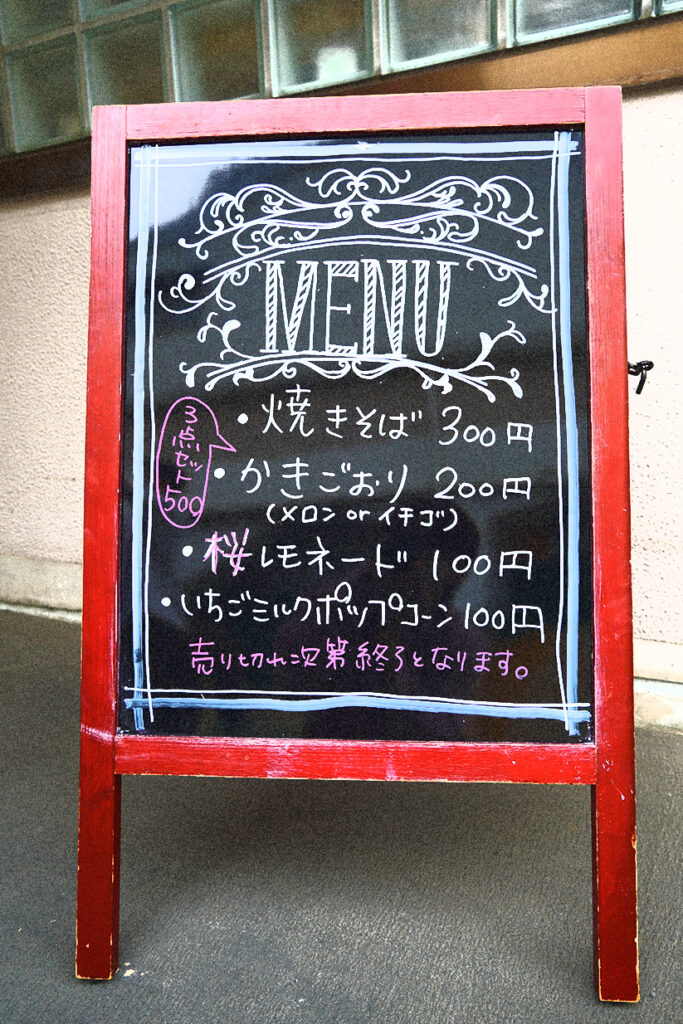 MENU
・焼きそば 300円
3点セット
500
・かきごおり 200円
(メロン or イチゴ)
・桜レモネード 100円
・いちごミルクポップコーン 100円
売り切れ次第終了となります。